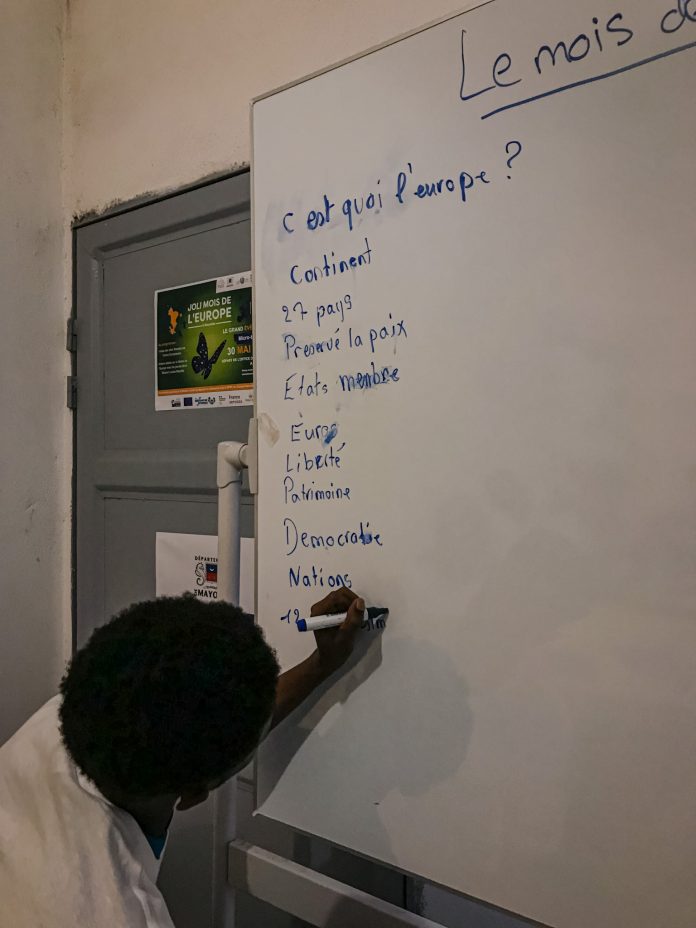 Le mois de
C'est quoi l'europe ?
Continent
27 pays
Preservé la paix
États membre
Euro
Liberté
Patrimoine
Democratie
Nations
12
JOLI MOIS DE
L'EUROPE
LE GRAND
30 MAI
DÉPARTE
MAYO